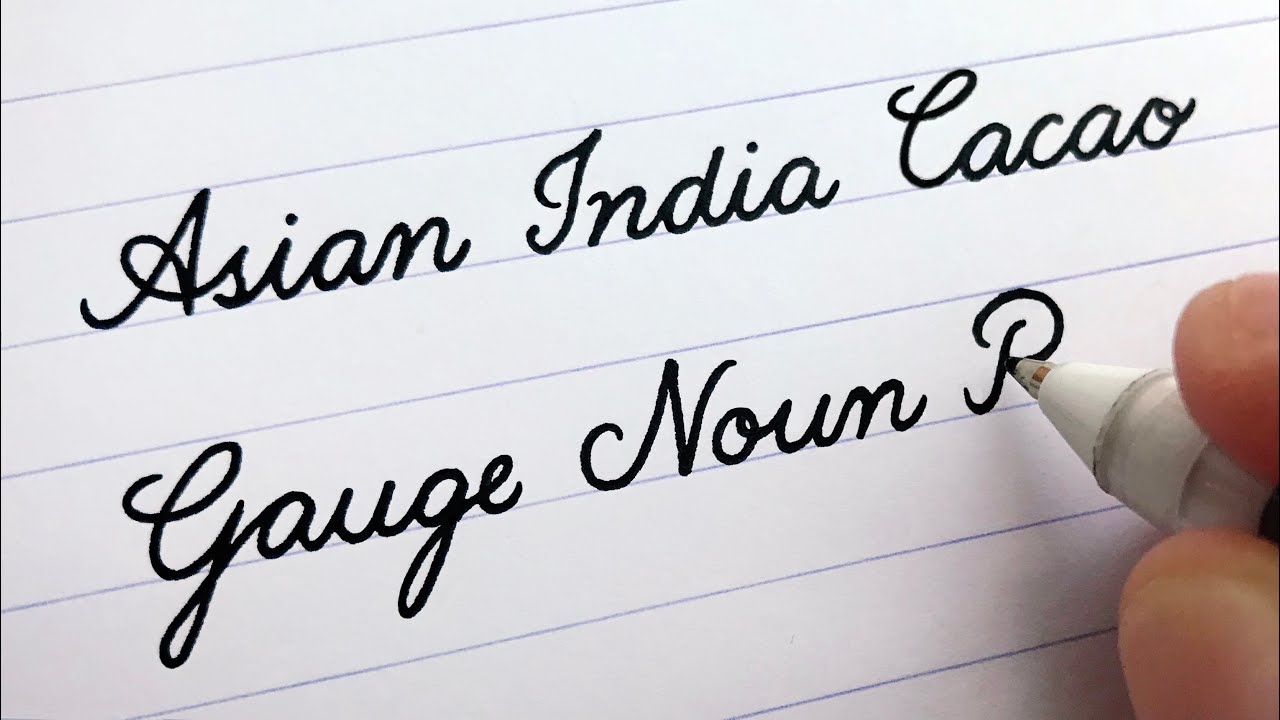 Asian India Cacao
Gauge Noun R